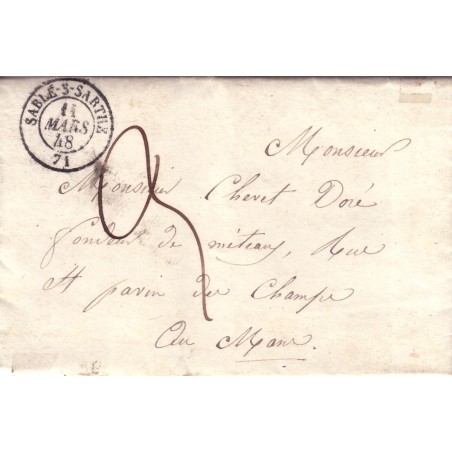 SABLÉ-S-SARTHE
11
MARS
48
71
Monsieur
Monsieur Chevet Doré
fondeur de métaux, Rue
St pavin des Champs
Au Mans.